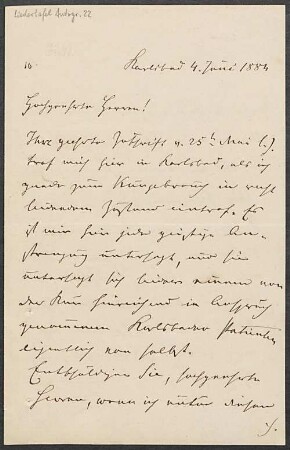 Liedertafel Autogr. 22
10.
Karlsbad 4. Juni 1884
Hochgeehrte Herren!
Ihre geehrte Zuschrift v. 25t Mai l. J.
traf mich hier in Karlsbad, als ich
gerade zum Kurgebrauch in recht
leidendem Zustand eintraf. Es
ist mir hier jede geistige An-
strengung untersagt, und sie
untersagt sich leider einem von
der Kur hinreichend in Anspruch
genommenen Karlsbader Patienten
eigentlich von selbst.
Entschuldigen Sie, hochgeehrte
Herren, wenn ich unter diesen